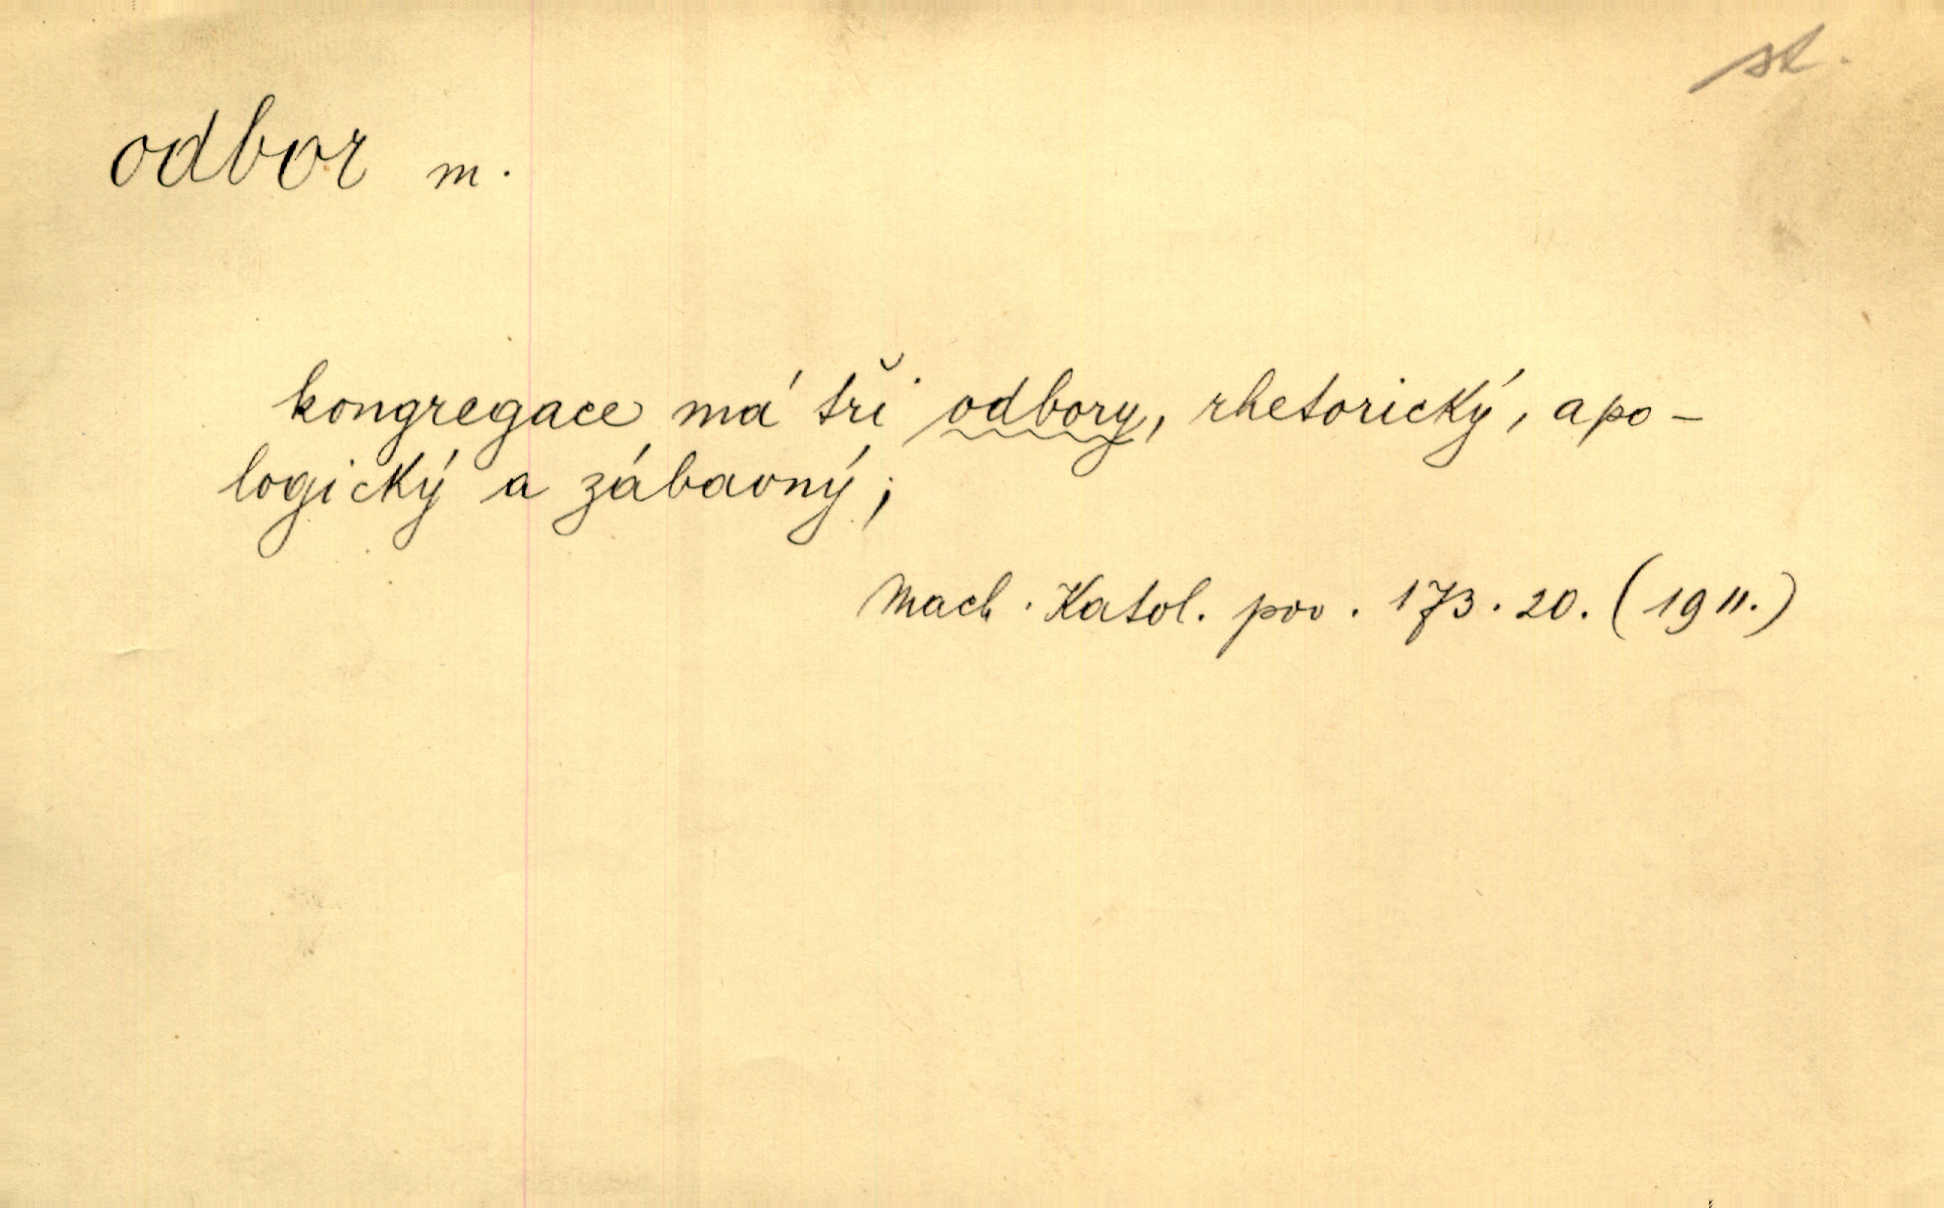 st.
odbor m.
kongregace má tři odbory, rhetorický, apo-
logický a zábavný;
Mach. Katol. pov. 173. 20. (1911.)